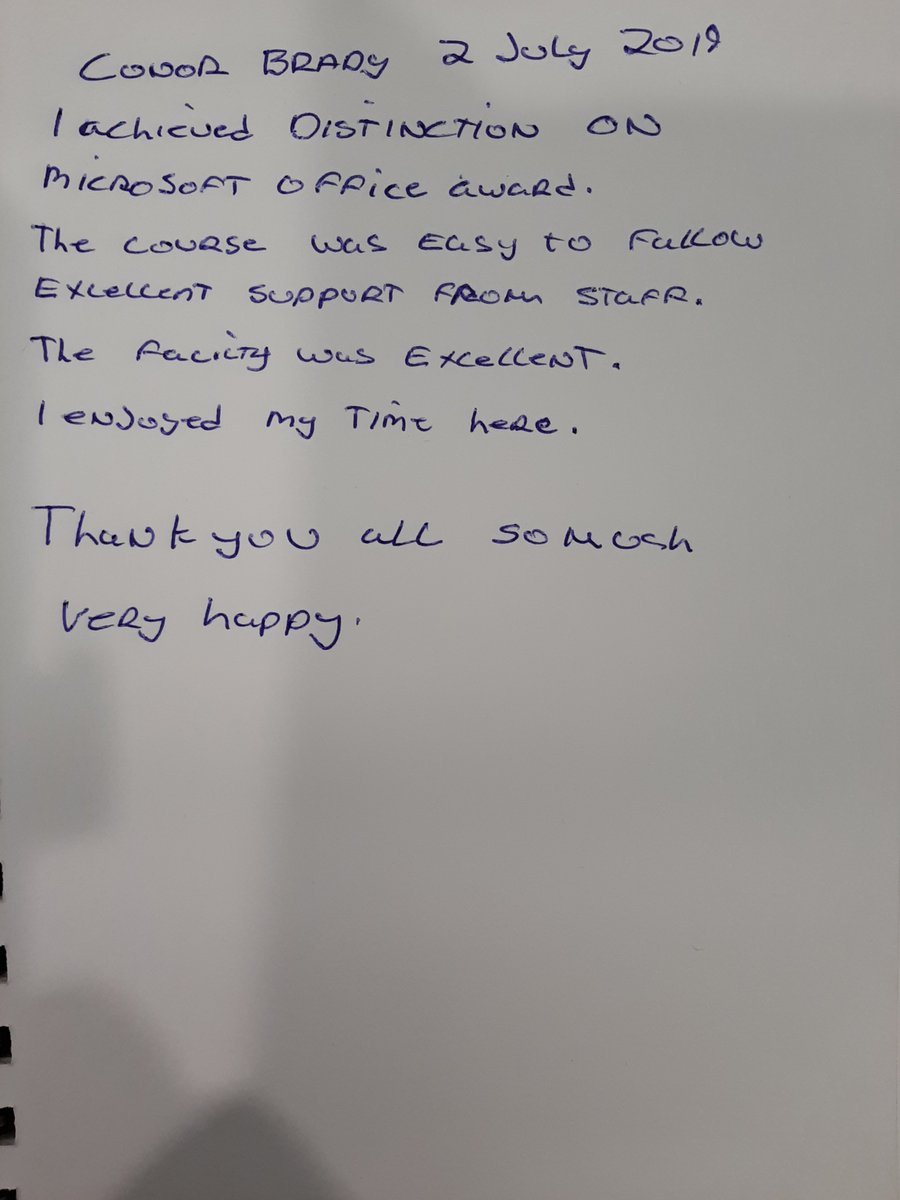 CONOR BRADY 2 July 2019
I achieved DISTINCTION ON
MICROSOFT OFFICE award.
The COURSE was EASY to Fallow
EXCELLENT SUPPORT FROM STAFF.
The facilty was EXCELLENT.
I enjoyed my TIME here.
Thank you all so mush
VERY happy.